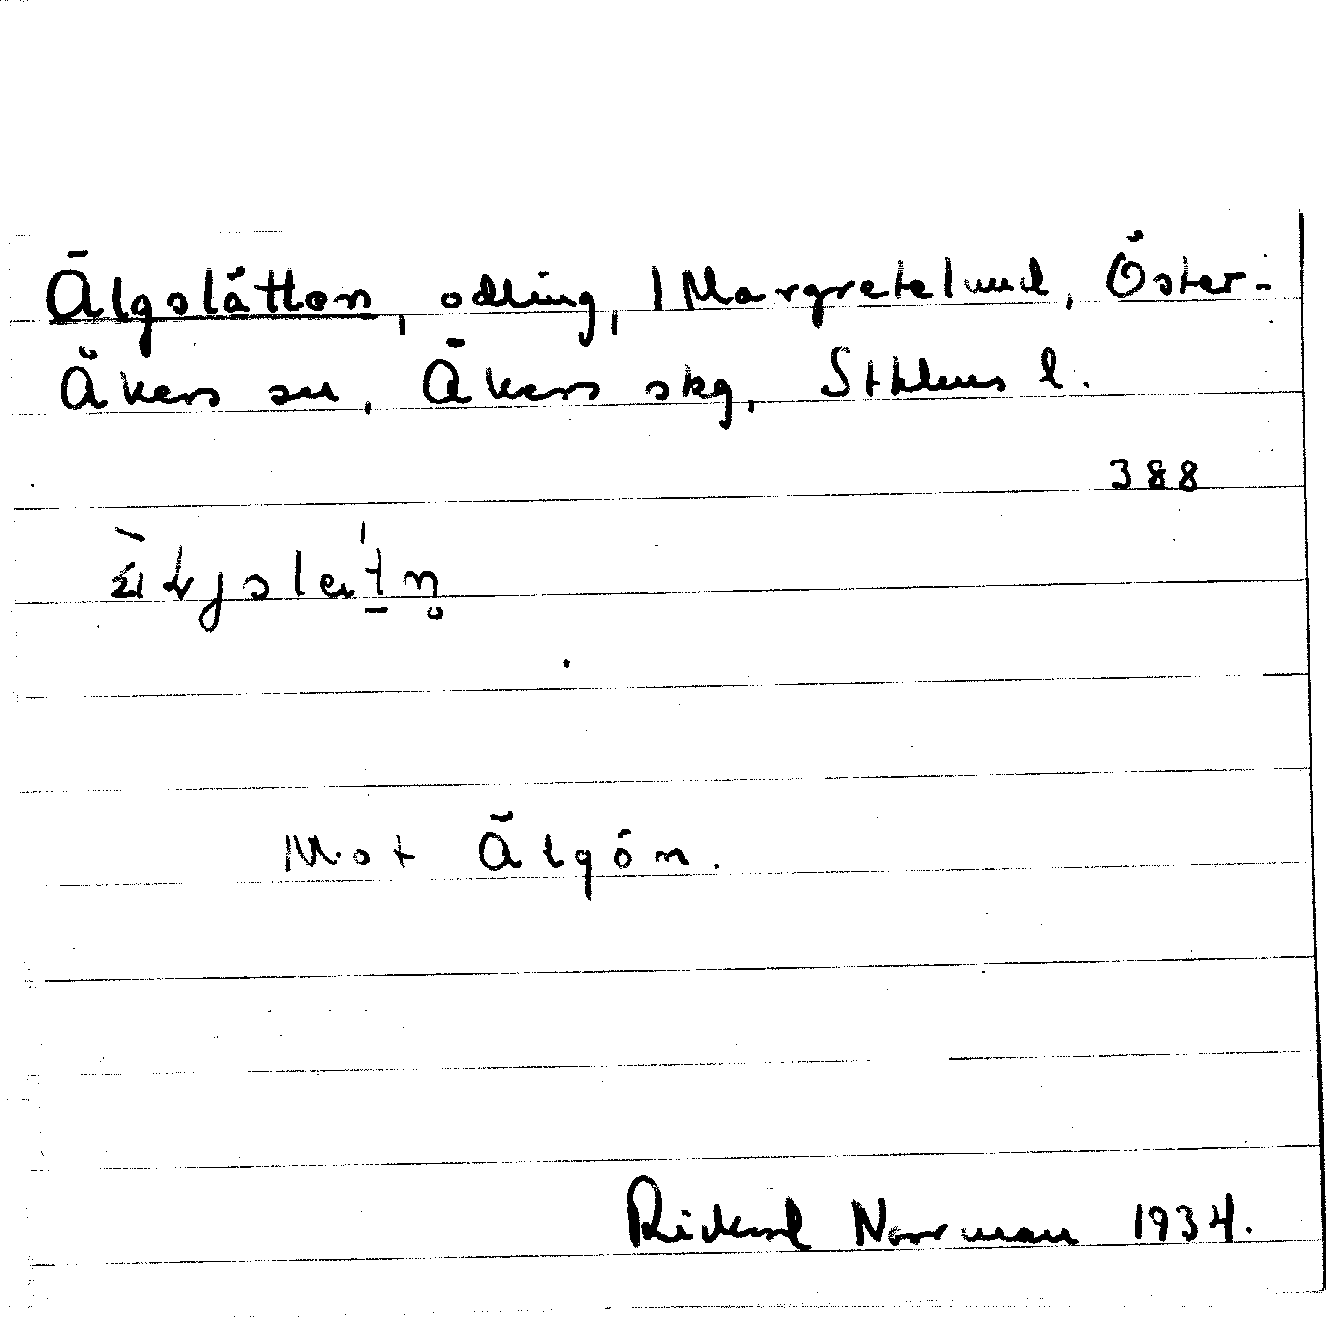 Älgslåtten, odling, Margretelund, Öster-
Åkers sn, Åkers skg, Sthlms l.
388
Mot Älgön.
Rickard Norrman 1934.